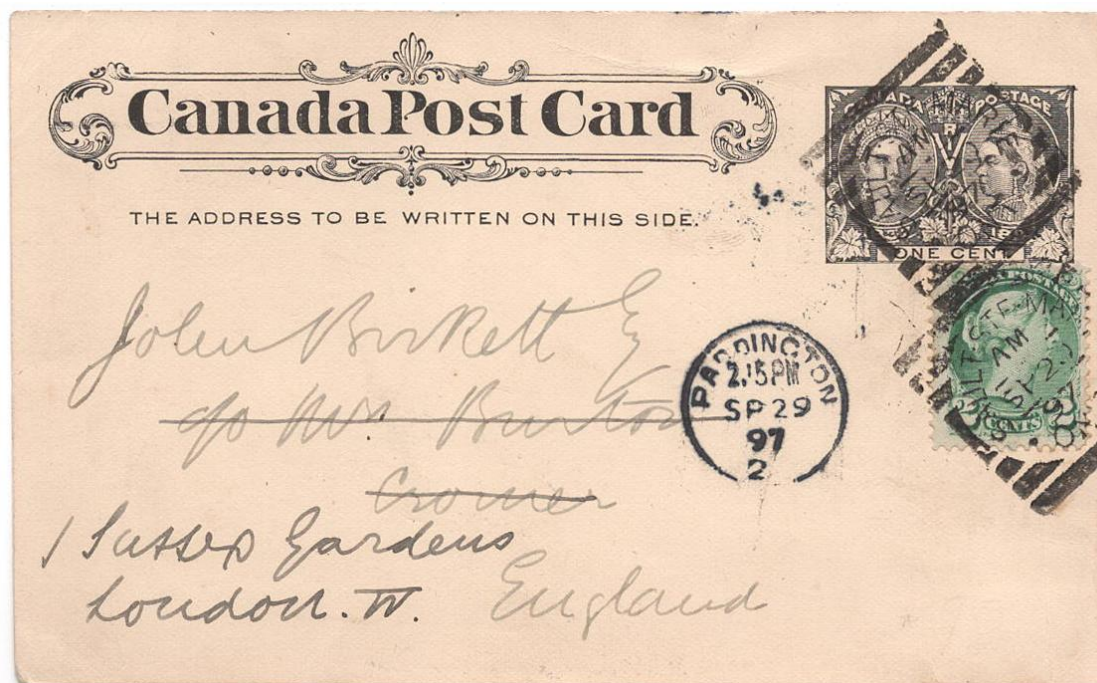 Canada Post Card
THE ADDRESS TO BE WRITTEN ON THIS SIDE.
CANADA POSTAGE
ONE CENT
AM
SP 2
97
2 CENTS
PADDINGTON
2.15 PM
SP 29
97
2
John Birkett Esq
c/o Mrs Burton
Cromer
1 Sussex Gardens
London. W. England